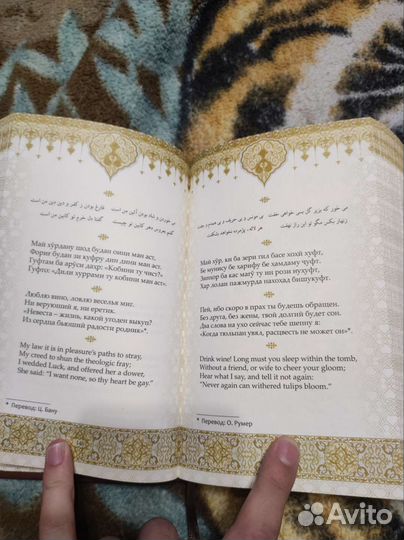 می خوردن و شاد بودن آئین من است
فارغ بودن ز کفر و دین دین من است
گفتم بعروس دهر کابین تو چیست
گفتا دل خرم تو کابین من است
Май хӯрдану шод будан оини ман аст,
Фориғ будан зи куфру дин дини ман аст.
Гуфтам ба арӯси даҳр: «Кобини ту чист?»
Гуфто: «Дили хуррами ту кобини ман аст».
Люблю вино, ловлю веселья миг.
Ни верующий я, ни еретик.
«Невеста – жизнь, какой угоден выкуп?»
«Из сердца бьющий радости родник»*.
My law it is in pleasure's paths to stray,
My creed to shun the theologic fray;
I wedded Luck, and offered her a dower,
She said: "I want none, so thy heart be gay."
* Перевод: Ц. Бану
می خور که بزیر گل بسی خواهی خفت
بی مونس و بی حریف و بی همدم و جفت
زنهار بکس مگو تو این راز نهفت
هر لاله پژمرده نخواهد بشکفت
Май хӯр, ки ба зери гил басе хоҳӣ хуфт,
Бе мунису бе ҳарифу бе ҳамдаму ҷуфт.
Зинҳор ба кас магӯ ту ин рози нуҳуфт,
Ҳар лолаи пажмурда нахоҳад бишукуфт.
Пей, ибо скоро в прах ты будешь обращен.
Без друга, без жены, твой долгий будет сон.
Два слова на ухо сейчас тебе шепну я:
«Когда тюльпан увял, расцвесть не может он»*.
Drink wine! Long must you sleep within the tomb,
Without a friend, or wife to cheer your gloom;
Hear what I say, and tell it not again:
"Never again can withered tulips bloom."
* Перевод: О. Румер
Avito